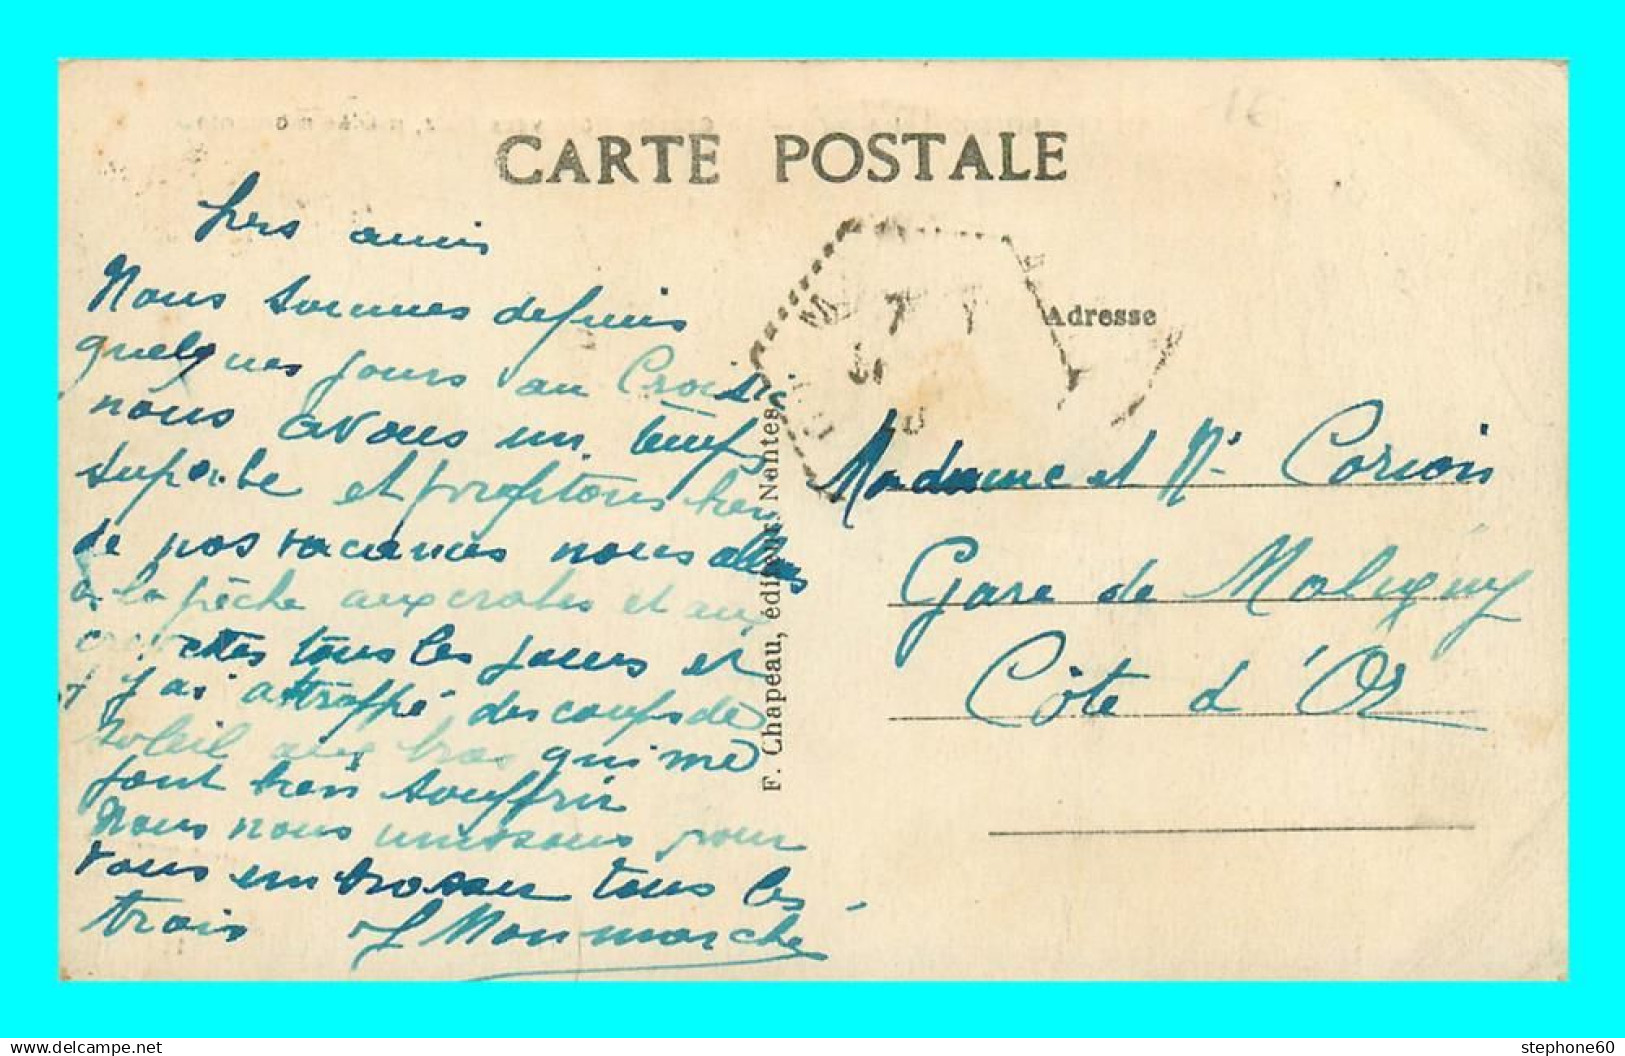 CARTE POSTALE
chers amis
Nous sommes depuis
quelques jours au Croisic
nous avons un temps
superbe et profitons bien
de nos vacances nous allons
a la pêche aux crabes et aux
crevettes tous les jours et
j'ai attrappé des coups de
soleil aux bras qui me
font bien souffrir
Nous nous unissons pour
vous embrasser tous les
trois Monmarche
F. Chapeau, éditeur, Nantes
Adresse
Madame et Mr
Gare de
Côte d'Or
stephone60